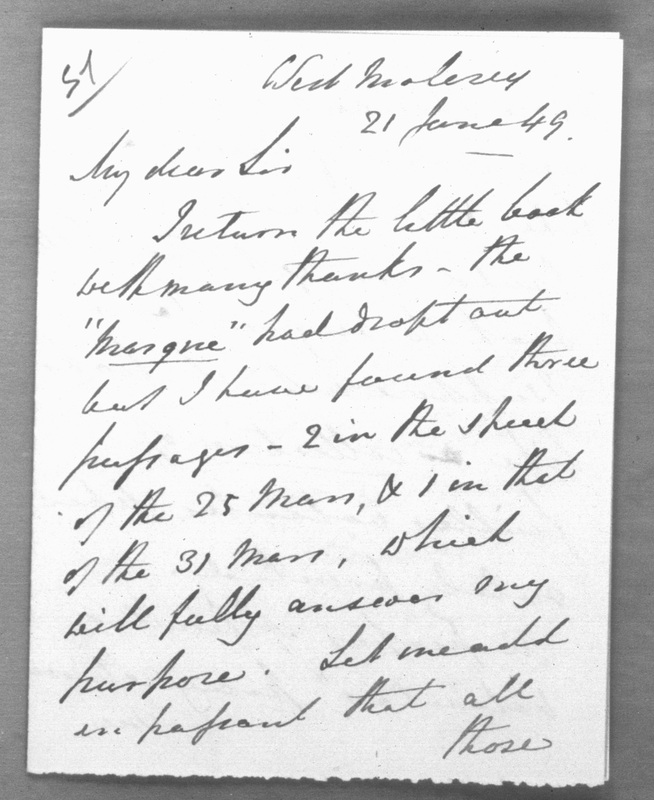 West Molesey
21 June 49.
My dear Sir
I return the little book
with many thanks - the
"Masque" had dropt out
but I have found three
passages - 2 in the speech
of the 25 Mars, & 1 in that
of the 31 Mars, which
will fully answer my
purpose. Let me add
en passant that all
those